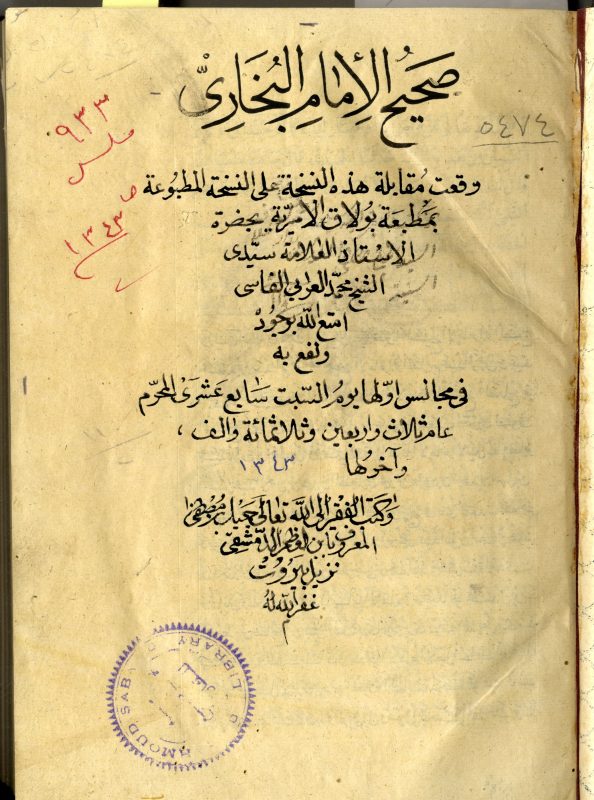 صَحِيحُ الإِمَامِ البُخَارِيّ
٩٣٣
٥٤٧٤
وقعت مُقابلة هذه النسخة على النسخة المطبوعة
بمَطبعَة بُولاق الأميريّة بحضرة
الاسْتاذ العَلامة سيّدى
الشيخ محمّد العَربي الفاسى
امتع الله بوجُودْه
ونفع به
١٣٤٣
فى مجالس اوّلها يومُ السّبت سَابع عَشرَى المحرّم
عام ثلاث واربعين وثلاثمائة والف ،
وآخرُها
١٣٤٣
وكتب الفقير الى الله تعالى جميل بن مُصْطفى
المعروف بابن العظم الدّمَشقى
نزيل بيرُوت
غفر الله لهُ
MOUD SAB
LIBRARY